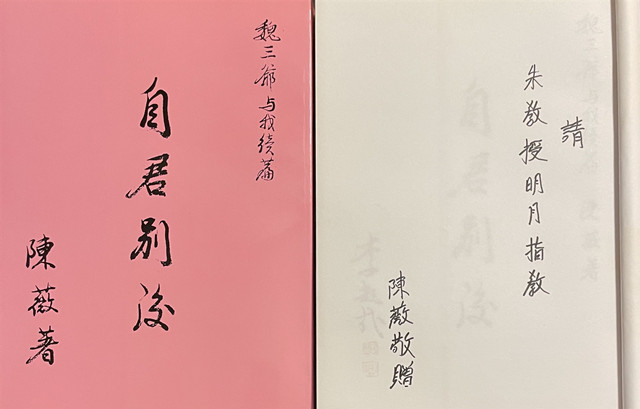 魏三爺与我续篇
自君别後
陳薇著
請
朱教授明月指教
陳薇敬贈